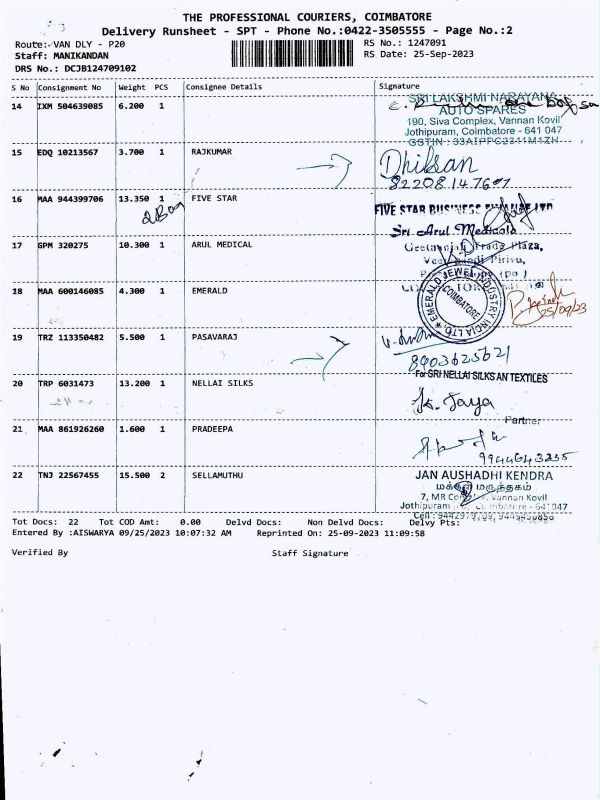 THE PROFESSIONAL COURIERS, COIMBATORE
Delivery Runsheet - SPT - Phone No.:0422-3505555 - Page No.:2
Route:- VAN DLY - P20
RS No.: 1247091
Staff: MANIKANDAN
RS Date: 25-Sep-2023
DRS No.: DCJB124709102
S No Consignment No Weight PCS Consignee Details Signature
14 IXM 504639085 6.200 1
SRI LAKSHMI NARAYANA
AUTO SPARES
190, Siva Complex, Vannan Kovil
Jothipuram, Coimbatore - 641 047
GSTIN : 33AIPPC2311M1ZH
15 EDQ 10213567 3.700 1 RAJKUMAR
16 MAA 944399706 13.350 1 FIVE STAR
FIVE STAR BUSINESS FINANCE LTD
17 GPM 320275 10.300 1 ARUL MEDICAL
Sri. Arul Medicals
Trade Plaza,
18 MAA 600146085 4.300 1 EMERALD
EMERALD JEWEL INDUSTRY INDIA LTD
COIMBATORE
25/09/23
19 TRZ 113350482 5.500 1 PASAVARAJ
8903625621
20 TRP 6031473 13.200 1 NELLAI SILKS
For SRI NELLAI SILKS AN TEXTILES
Jaya
Partner
21 MAA 861926260 1.600 1 PRADEEPA
22 TNJ 22567455 15.500 2 SELLAMUTHU
JAN AUSHADHI KENDRA
மக்கள் மருந்தகம்
7, MR Vannan Kovil
Jothipuram Coimbatore - 641 047
Tot Docs: 22 Tot COD Amt: 0.00 Delvd Docs: Non Delvd Docs: Delvy Pts:
Entered By :AISWARYA 09/25/2023 10:07:32 AM Reprinted On: 25-09-2023 11:09:58
Verified By Staff Signature